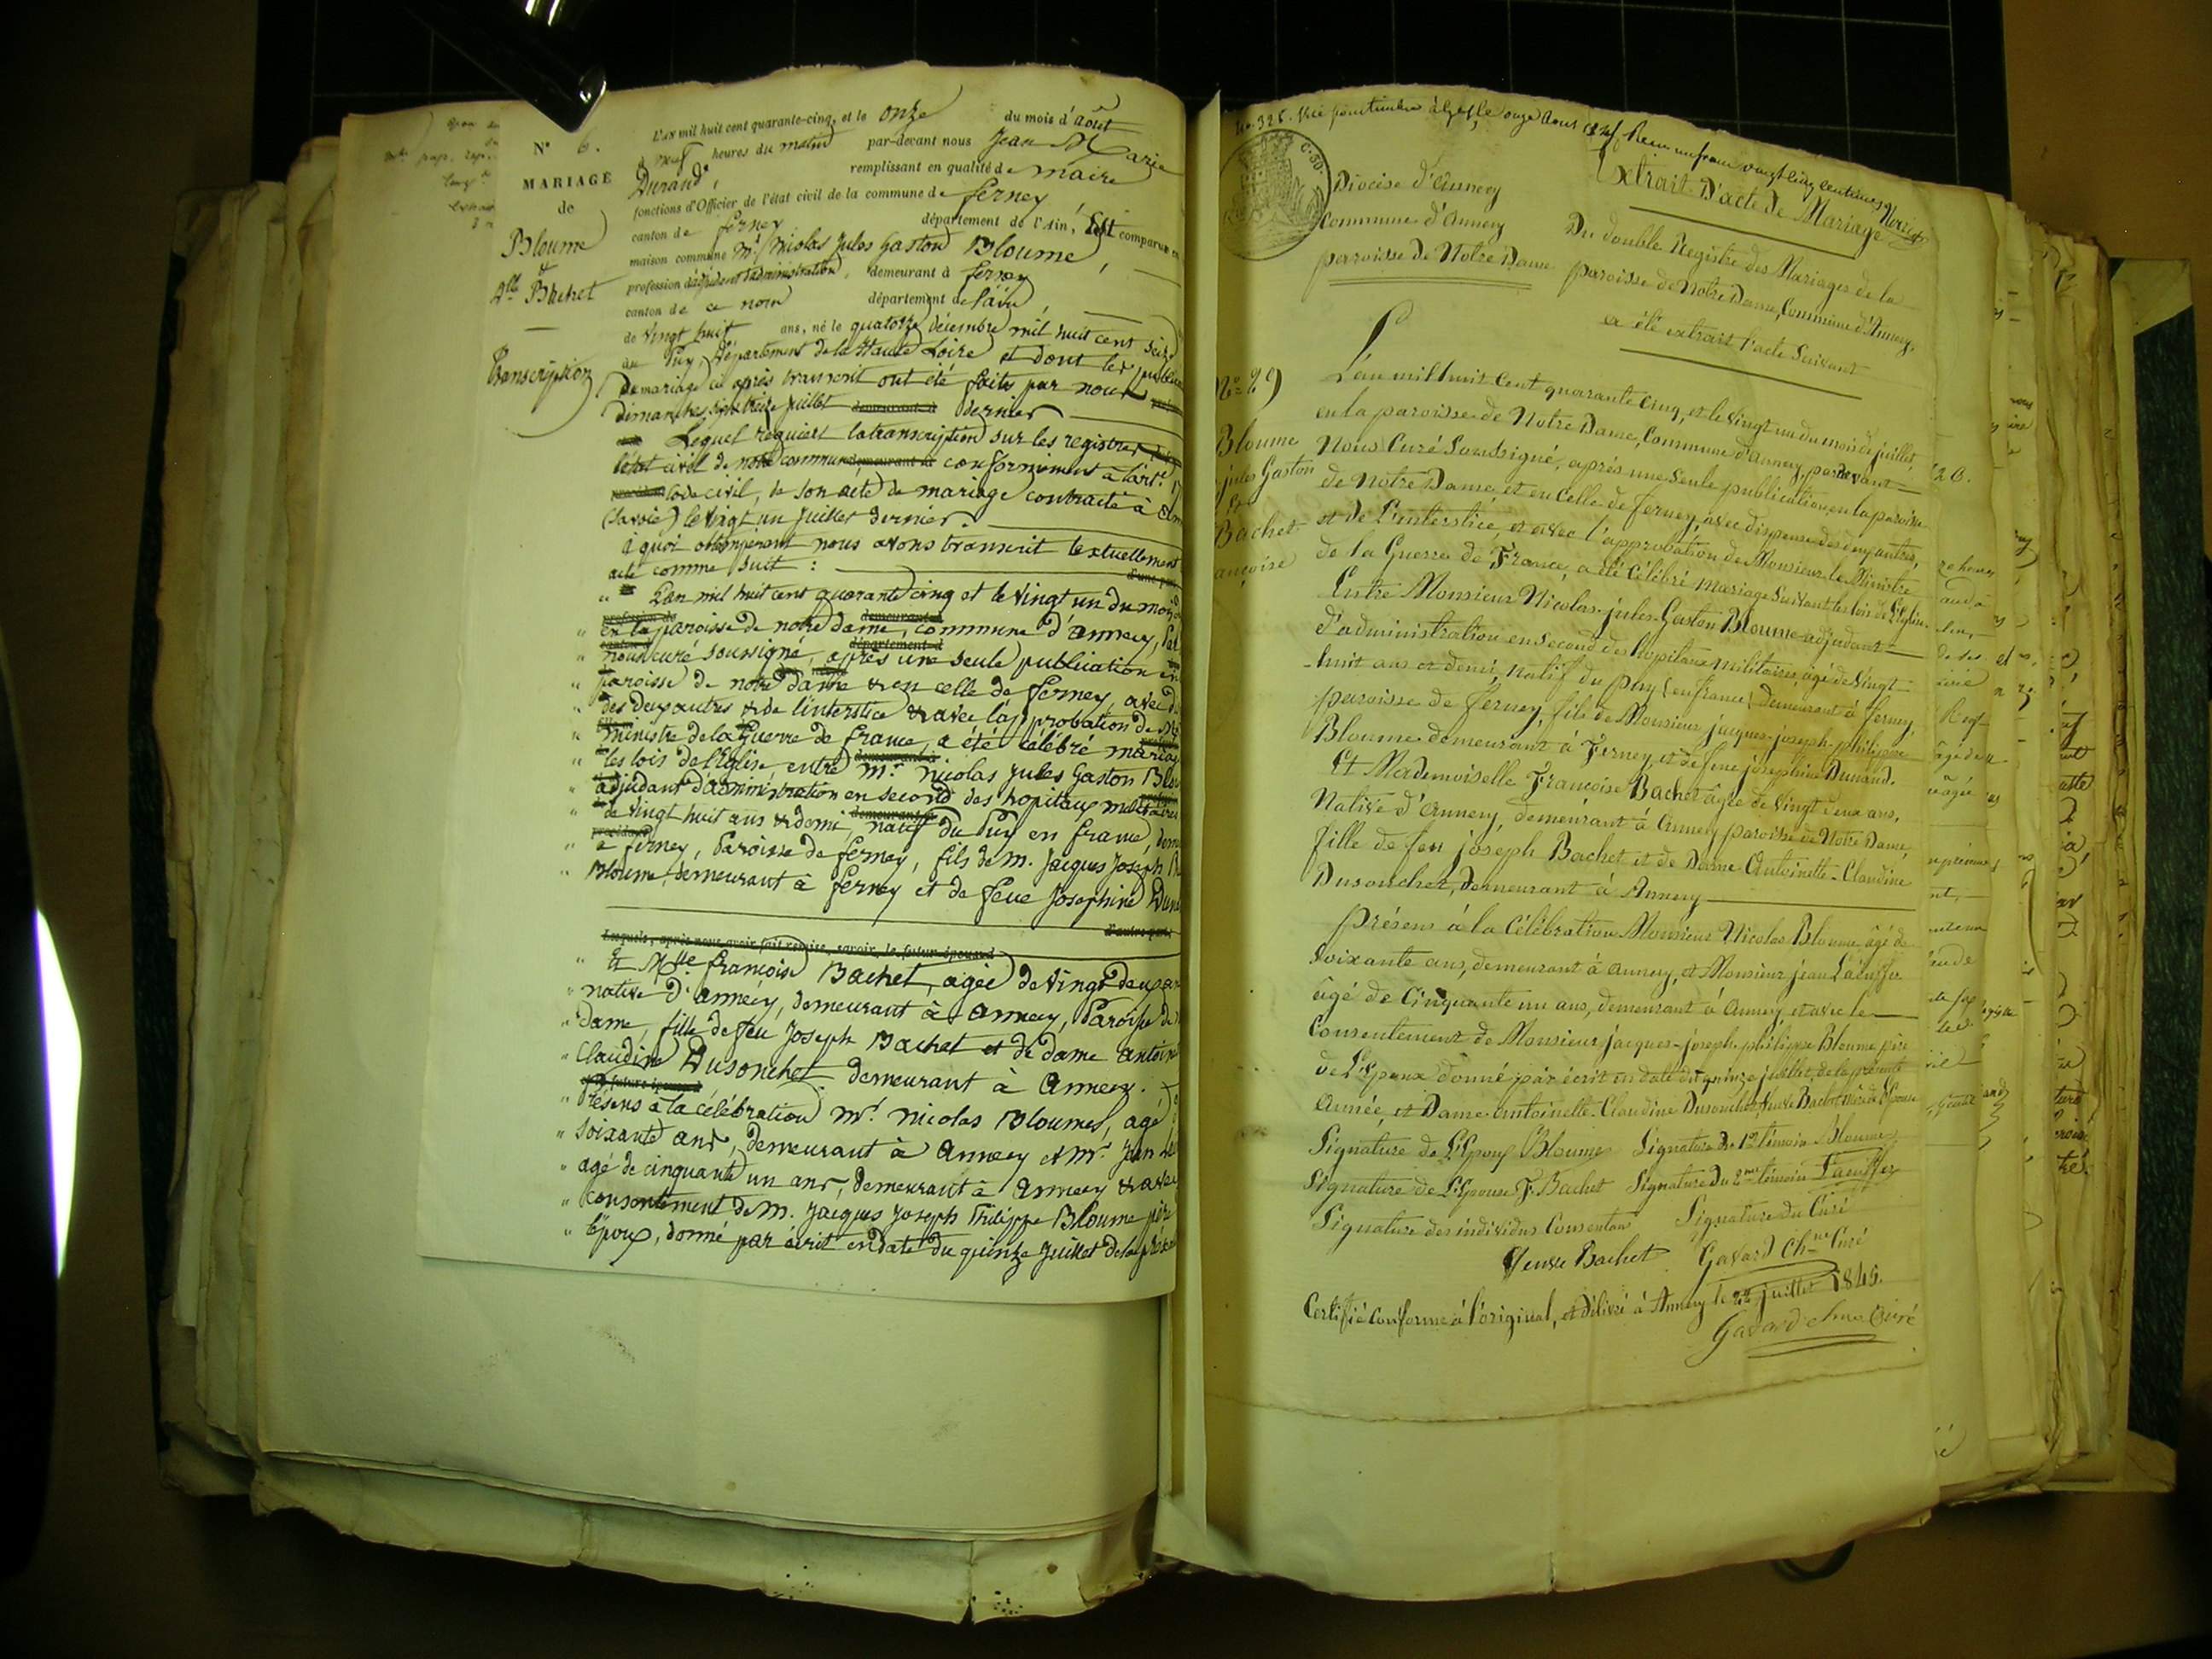 N° 6.
MARIAGE
de
Bloume
&
Dlle Bachet
Transcription
L'an mil huit cent quarante-cinq, et le onze du mois d'août
à neuf heures du matin par-devant nous Jean Marie
Durand, remplissant en qualité de maire
fonctions d'Officier de l'état civil de la commune de ferney
canton de ferney département de l'Ain, Est comparu en
maison commune Mr Nicolas Jules Gaston Bloume,
profession d'adjudant d'administration, demeurant à ferney
canton de ce nom département de l'ain,
de vingt huit ans, né le quatorze décembre mil huit cent seize
au Puy, Département de la Haute Loire et dont les
de mariage ci après transcrit ont été faites par nous
dimanches treize juillet dernier
Lequel requiert la transcription sur les registres
l'état civil de notre commune conformément à l'art.
code civil, de son acte de mariage contracté à
(Savoie) le vingt un juillet dernier.
à quoi obtempérant nous avons transcrit textuellement
acte comme suit :
" L'an mil huit cent quarante cinq et le vingt un du mois
" en la paroisse de notre dame, commune d'annecy,
" nous curé soussigné, après une seule publication en
" paroisse de notre dame & en celle de ferney, avec
" des deux autres & de l'interstice & avec l'approbation de
" ministre de la Guerre de france, a été célébré mariage
" les lois de l'Eglise entre mr. Nicolas Jules Gaston
" adjudant d'administration en second des hopitaux militaires
" de vingt huit ans & demi, natif du Puy en france,
" à ferney, Paroisse de ferney, fils de m. Jacques Joseph
" Bloume, demeurant à ferney et de feue Josephine
d'autre part
Lesquels, après nous avoir fait remise, savoir, le futur épouse
" Et Mlle françoise Bachet, agée de vingt deux ans
" native d'annecy, demeurant à Annecy, Paroisse de
" dame, fille de feu Joseph Bachet et de dame
" Claudine Dusonchet demeurant à Annecy.
" Présens à la célébration mr. Nicolas Bloume, agé
" soixante ans, demeurant à Annecy et mr. Jean
" agé de cinquante un ans, demeurant à annecy & avec
" consentement de m. Jacques Joseph Philippe Bloume père
" époux, donné par écrit en date du quinze juillet de la
No. 326. Visé pour timbre à Gex, le onze août
Reçu un franc vingt cinq centimes
C. 50.
Diocèse d'Annecy
Commune d'Annecy
paroisse de Notre Dame
Extrait D'acte de Mariage
Du double Registre des Mariages de la
paroisse de Notre Dame, Commune d'Annecy,
a été extrait l'acte Suivant
No. 29
Bloume
jules Gaston
Bachet
L'an mil huit Cent quarante cinq, et le Vingt un du mois de juillet,
en la paroisse de Notre Dame, Commune d'Annecy, pardevant
Nous Curé Soussigné, après une Seule publication en la paroisse
de Notre Dame, et en Celle de ferney, avec dispense des deux autres,
et de L'interstice, et avec l'approbation de Monsieur le Ministre
de la Guerre de France, a été Célébré mariage Suivant les lois de L'Eglise
Entre Monsieur Nicolas-jules-Gaston Bloume adjudant
d'administration en Second des hopitaux militaires, agé de Vingt-
-huit ans et demi, natif du puy (en france) Demeurant à ferney,
paroisse de ferney, fils de Monsieur jacques-joseph-philippe
Bloume demeurant à Ferney, et de feue joséphine Durand.
Et Mademoiselle Françoise Bachet âgée de Vingt deux ans,
Native d'Annecy, demeurant à Annecy paroisse de Notre Dame,
fille de feu joseph Bachet et de Dame Antoinette-Claudine
Dusonchet, Demeurant à Annecy
présens à la Célébration Monsieur Nicolas Bloume, âgé de
Soixante ans, demeurant à Annecy, et Monsieur jean Laeuffer
âgé de Cinquante un ans, demeurant à Annecy et avec le
Consentement de Monsieur jacques-joseph-philippe Bloume père
de L'Epoux donné par écrit en date du quinze juillet de la présente
Année, et Dame Antoinette-Claudine Dusonchet, Veuve Bachet mère de l'Epouse
Signature de L'Epoux Bloume Signature du 1er témoin Bloume
Signature de L'Epouse F. Bachet Signature Du 2me témoin Laeuffer
Signature des individus Consentans Signature du Curé
Veuve Bachet Gavard Chne Curé
Certifié Conforme à l'original, et délivré à Annecy le 22 juillet 1845.
Gavard chne Curé